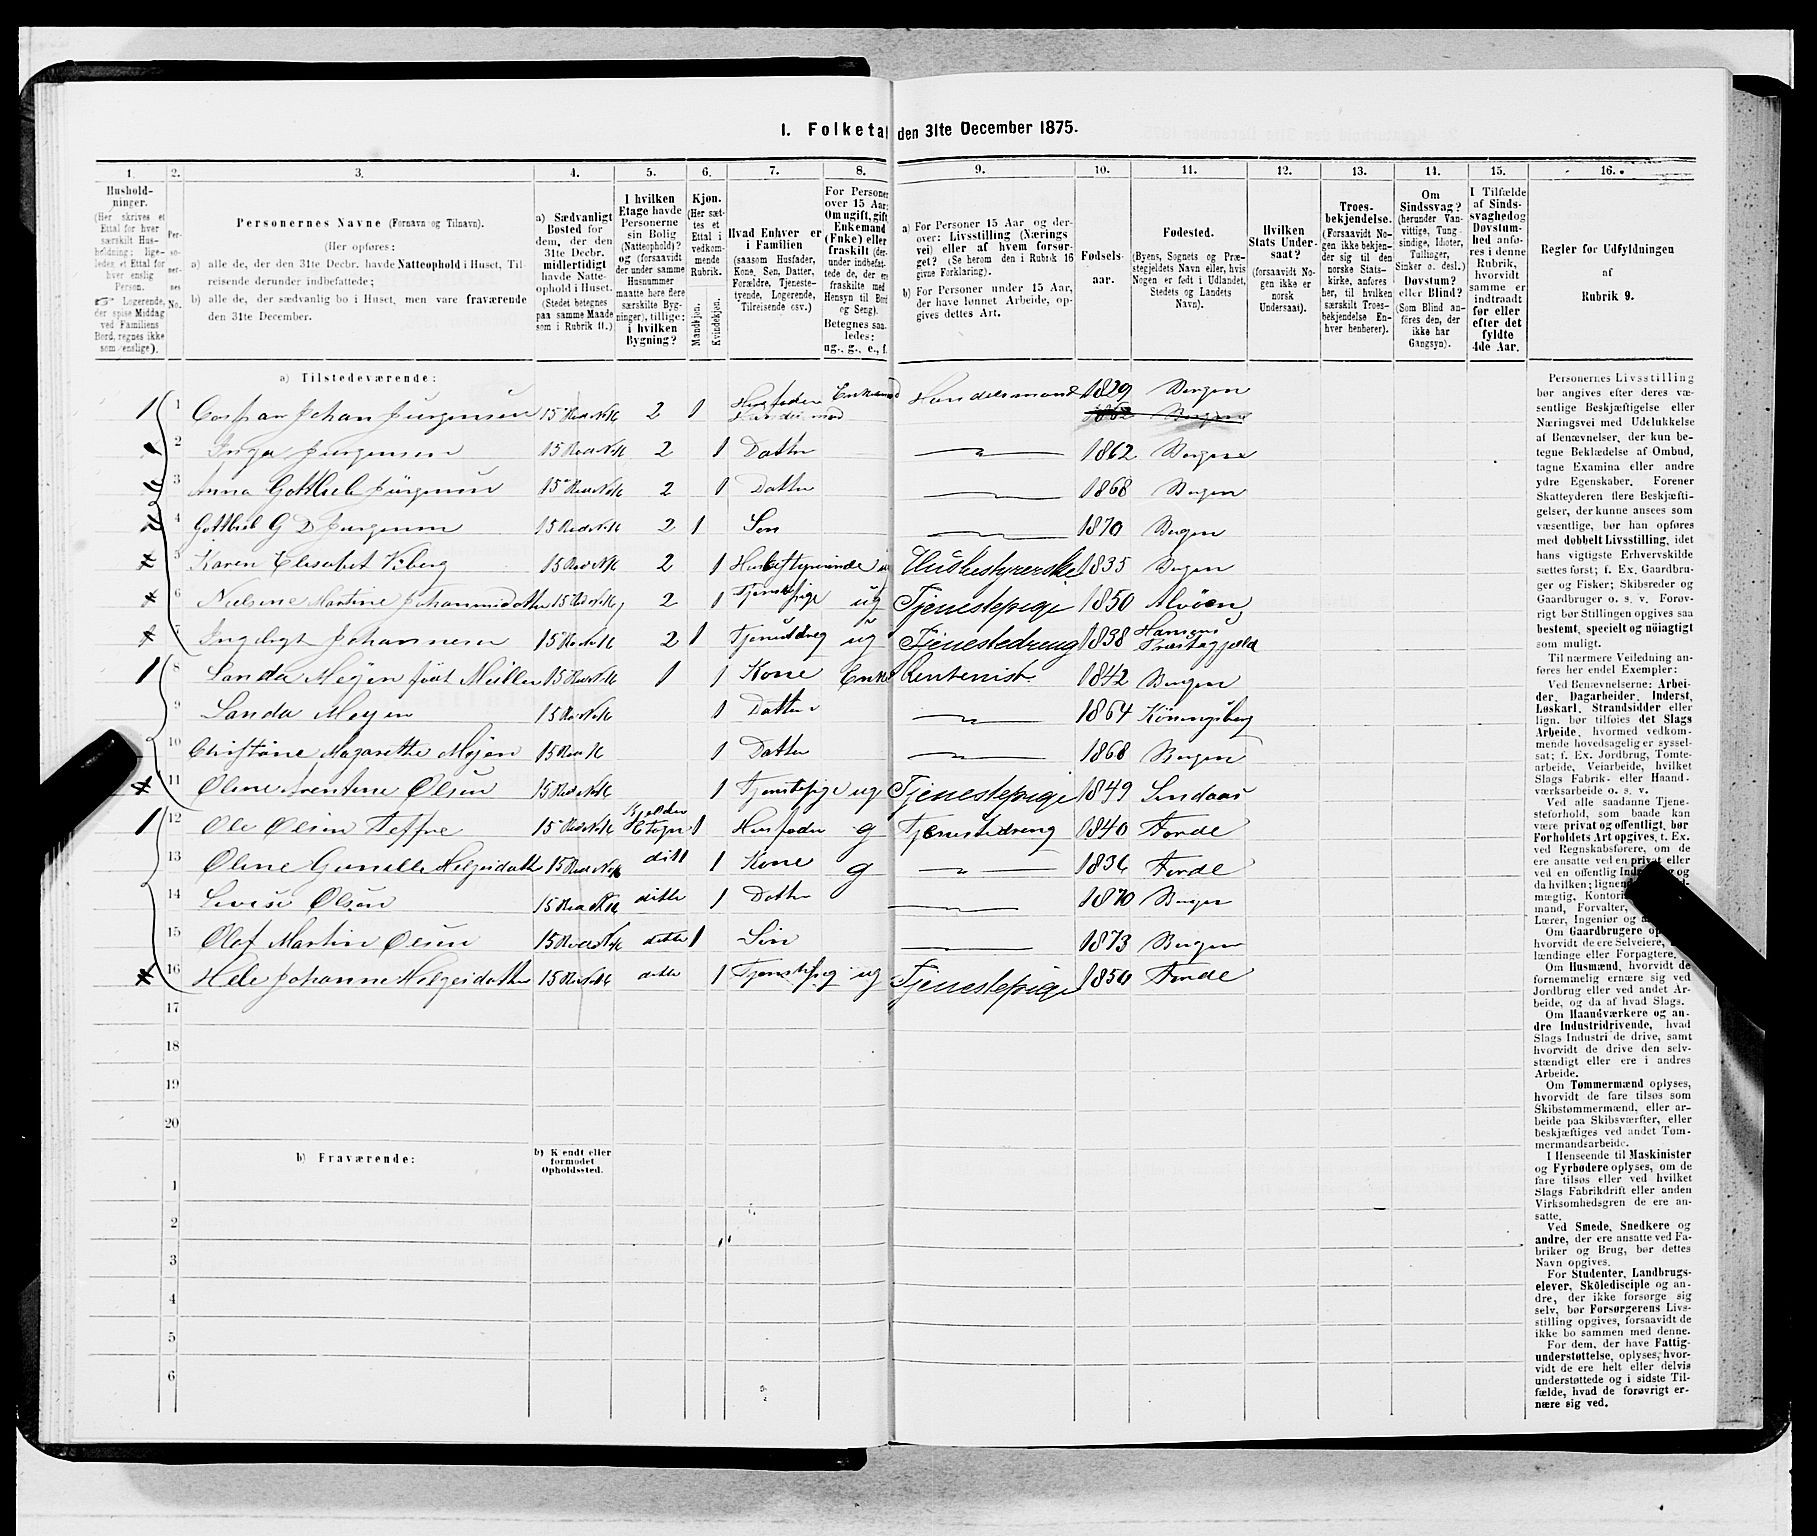 1. Folketal den 31te December 1875.
1. 2. 3. 4. 5. 6. 7. 8. 9. 10. 11. 12. 13. 14. 15. 16.
Hushold-
ninger.
(Her skrives et
Ettal for hver
særskilt Hus-
holdning; lige-
ledes et Ettal for
hver enslig
Person.
☞ Logerende,
der spise Middag
ved Familiens
Bord, regnes ikke
som enslige).
Per-
soner-
nes
No.
Personernes Navne (Fornavn og Tilnavn).
(Her opføres:
a) alle de, der den 31te Decbr. havde Natteophold i Huset, Til-
reisende derunder indbefattede;
b) alle de, der sædvanlig bo i Huset, men vare fraværende
den 31te December.
a) Sædvanligt
Bosted for
dem, der den
31te Decbr.
midlertidigt
havde Natte-
ophold i Huset.
(Stedet betegnes
paa samme Maade
som i Rubrik 11.)
I hvilken
Etage havde
Personerne
sin Bolig
(Natteophold)?
og (forsaavidt
der under samme
Husnummer
maatte høre flere
særskilte Byg-
ninger), tillige:
i hvilken
Bygning?
Kjøn.
(Her sæt-
tes et
Ettal i
vedkom-
mende
Rubrik.
Mandkjøn.
Kvindekjøn.
Hvad Enhver er
i Familien
(saasom Husfader,
Kone, Søn, Datter,
Forældre, Tjeneste-
tyende, Logerende,
Tilreisende osv.)
For Personer
over 15 Aar:
Om ugift, gift,
Enkemand
(Enke) eller
fraskilt (der-
under indbefat-
tede de, der ere
fraskilte med
Hensyn til Bord
og Seng).
Betegnes saa-
ledes:
ug., g., e., f.
a) For Personer 15 Aar og der-
over: Livsstilling (Nærings-
vei) eller af hvem forsør-
get? (Se herom den i Rubrik 16
givne Forklaring).
b) For Personer under 15 Aar,
der have lønnet Arbeide, op-
gives dettes Art.
Fødsels-
aar.
Fødested.
(Byens, Sognets og Præ-
stegjeldets Navn eller, hvis
Nogen er født i Udlandet,
Stedets og Landets
Navn).
Hvilken
Stats Under-
saat?
(forsaavidt No-
gen ikke er
norsk
Undersaat).
Troes-
bekjendelse.
(Forsaavidt No-
gen ikke bekjen-
der sig til den
norske Stats-
kirke, anføres
her, til hvilken
særskilt Troes-
bekjendelse En-
hver henhører).
Om
Sindssvag?
(herunder Van-
vittige, Tung-
sindige, Idioter,
Tullinger,
Sinker o. desl.)
Døvstum?
eller Blind?
(Som Blind an-
føres den, der
ikke har
Gangsyn).
I Tilfælde
af Sinds-
svaghed og
Døvstum-
hed anfø-
res i denne
Rubrik,
hvorvidt
samme er
indtraadt
før eller
efter det
fyldte
4de Aar.
Regler for Udfyldningen
af
Rubrik 9.
a) Tilstedeværende:
1 1 Johan Jürgensen 2 1 Husfader Enkemand Handelsmand 1829 Bergen
1862 Bergen
2 Inga Jürgensen 2 1 Datter 1862 Bergen
3 Anna Gottlieb Jürgensen 2 1 Datter 1868 Bergen
4 Gottlieb G D Jurgensen 2 1 Søn 1870 Bergen
5 Karen Elisabet Viberg 2 1 Husbestyrerinde Husbestyrerske 1835 Bergen
6 Nielsine Martine Johannesdatter 2 1 Tjenestepige ug Tjenestepige 1850 Alvöen
7 Johannesen 2 1 ug Tjenestedreng 1838 Præstegjeld
1 8 Meyer født Müller 1 1 Kone Enke Rentenist 1842 Bergen
9 Meyer 1 Datter 1864 Köningsberg
10 Christine Magarethe Mejer 1 Datter 1868 Bergen
11 Oline Olsen 1 Tjenstepige ug Tjenestepige 1849 Lindaas
1 12 Ole Olsen 1 Husfader g Tjenestedreng 1840 Førde
13 Oline Gunilde Helgesdatter ditt 1 Kone g 1836 Førde
14 Lovise Olsen ditto 1 Datter 1870 Bergen
15 Olaf Martin Olsen ditto 1 Søn 1873 Bergen
16 Johanne Helgesdatter ditto 1 ug Tjenestepige 1850 Førde
17
18
19
20
b) Fraværende:
b) Kjendt eller
formodet
Opholdssted.
1
2
3
4
5
6
Personernes Livsstilling
bør angives efter deres væ-
sentlige Beskjæftigelse eller
Næringsvei med Udelukkelse
af Benævnelser, der kun be-
tegne Beklædelse af Ombud,
tagne Examina eller andre
ydre Egenskaber. Forener
Skatteyderen flere Beskjæfti-
gelser, der kunne ansees som
væsentlige, bør han opføres
med dobbelt Livsstilling, idet
hans vigtigste Erhvervskilde
sættes først; f. Ex. Gaardbru-
ger og Fisker; Skibsreder og
Gaardbruger o. s. v. Forøv-
rigt bør Stillingen opgives saa
bestemt, specielt og nöiagtigt
som muligt.
Til nærmere Veiledning an-
føres her endel Exempler:
Ved Benævnelserne: Arbei-
der, Dagarbeider, Inderst,
Løskarl, Strandsidder eller
lign. bør tilføies det Slags
Arbeide, hvormed vedkom-
mende hovedsagelig er syssel-
sat; f. Ex. Jordbrug, Tomte-
arbeide, Veiarbeide, hvilket
Slags Fabrik- eller Haand-
værksarbeide o. s. v.
Ved alle saadanne Tjene-
steforhold, som baade kan
være privat og offentligt, bør
Forholdets Art opgives, t. Ex.
ved Regnskabsførere, om de
ere ansatte ved en privat eller
ved en offentlig
da hvilken;
mægtig,
mand, Forvalter,
Lærer, Ingeniør og
Om Gaardbrugere
hvorvidt de ere Selveiere,
lændinge eller Forpagtere.
Om Husmænd, hvorvidt de
fornemmelig ernære sig ved
Jordbrug eller ved andet Ar-
beide, og da af hvad Slags.
Om Haandværkere og an-
dre Industridrivende, hvad
Slags Industri de drive, samt
hvorvidt de drive den selv-
stændigt eller ere i andres
Arbeide.
Om Tømmermænd oplyses,
hvorvidt de fare tilsøs som
Skibstømmermænd, eller ar-
beide paa Skibsværfter, eller
beskjæftiges ved andet Tøm-
mermandsarbeide.
I Henseende til Maskinister
og Fyrbødere oplyses, om de
fare tilsøs eller ved hvilket
Slags Fabrikdrift eller anden
Virksomhedsgren de ere an-
satte.
Ved Smede, Snedkere og
andre, der ere ansatte ved Fa-
briker og Brug, bør dettes
Navn opgives.
For Studenter, Landbrugs-
elever, Skoledisciple og an-
dre, der ikke forsørge sig
selv, bør Forsørgerens Livs-
stilling opgives, forsaavidt de
ikke bo sammen med denne.
For dem, der have Fattig-
understøttelse, oplyses, hvor-
vidt de ere helt eller delvis
understøttede og i sidste Til-
fælde, hvad de forøvrigt er-
nære sig ved.